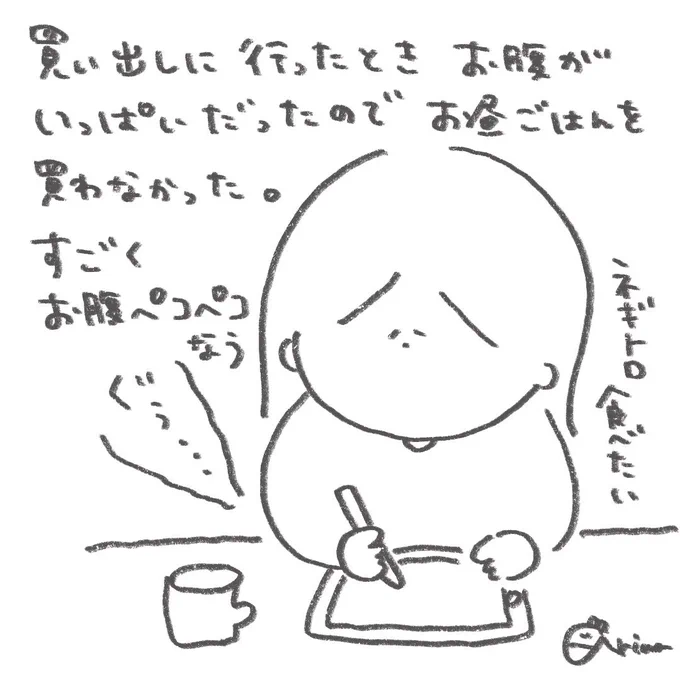 買い出しに行ったとき お腹が
いっぱいだったので お昼ごはんを
買わなかった。
すごく
お腹ペコペコ
なう
ぐぅ...
ネギトロ食べたい